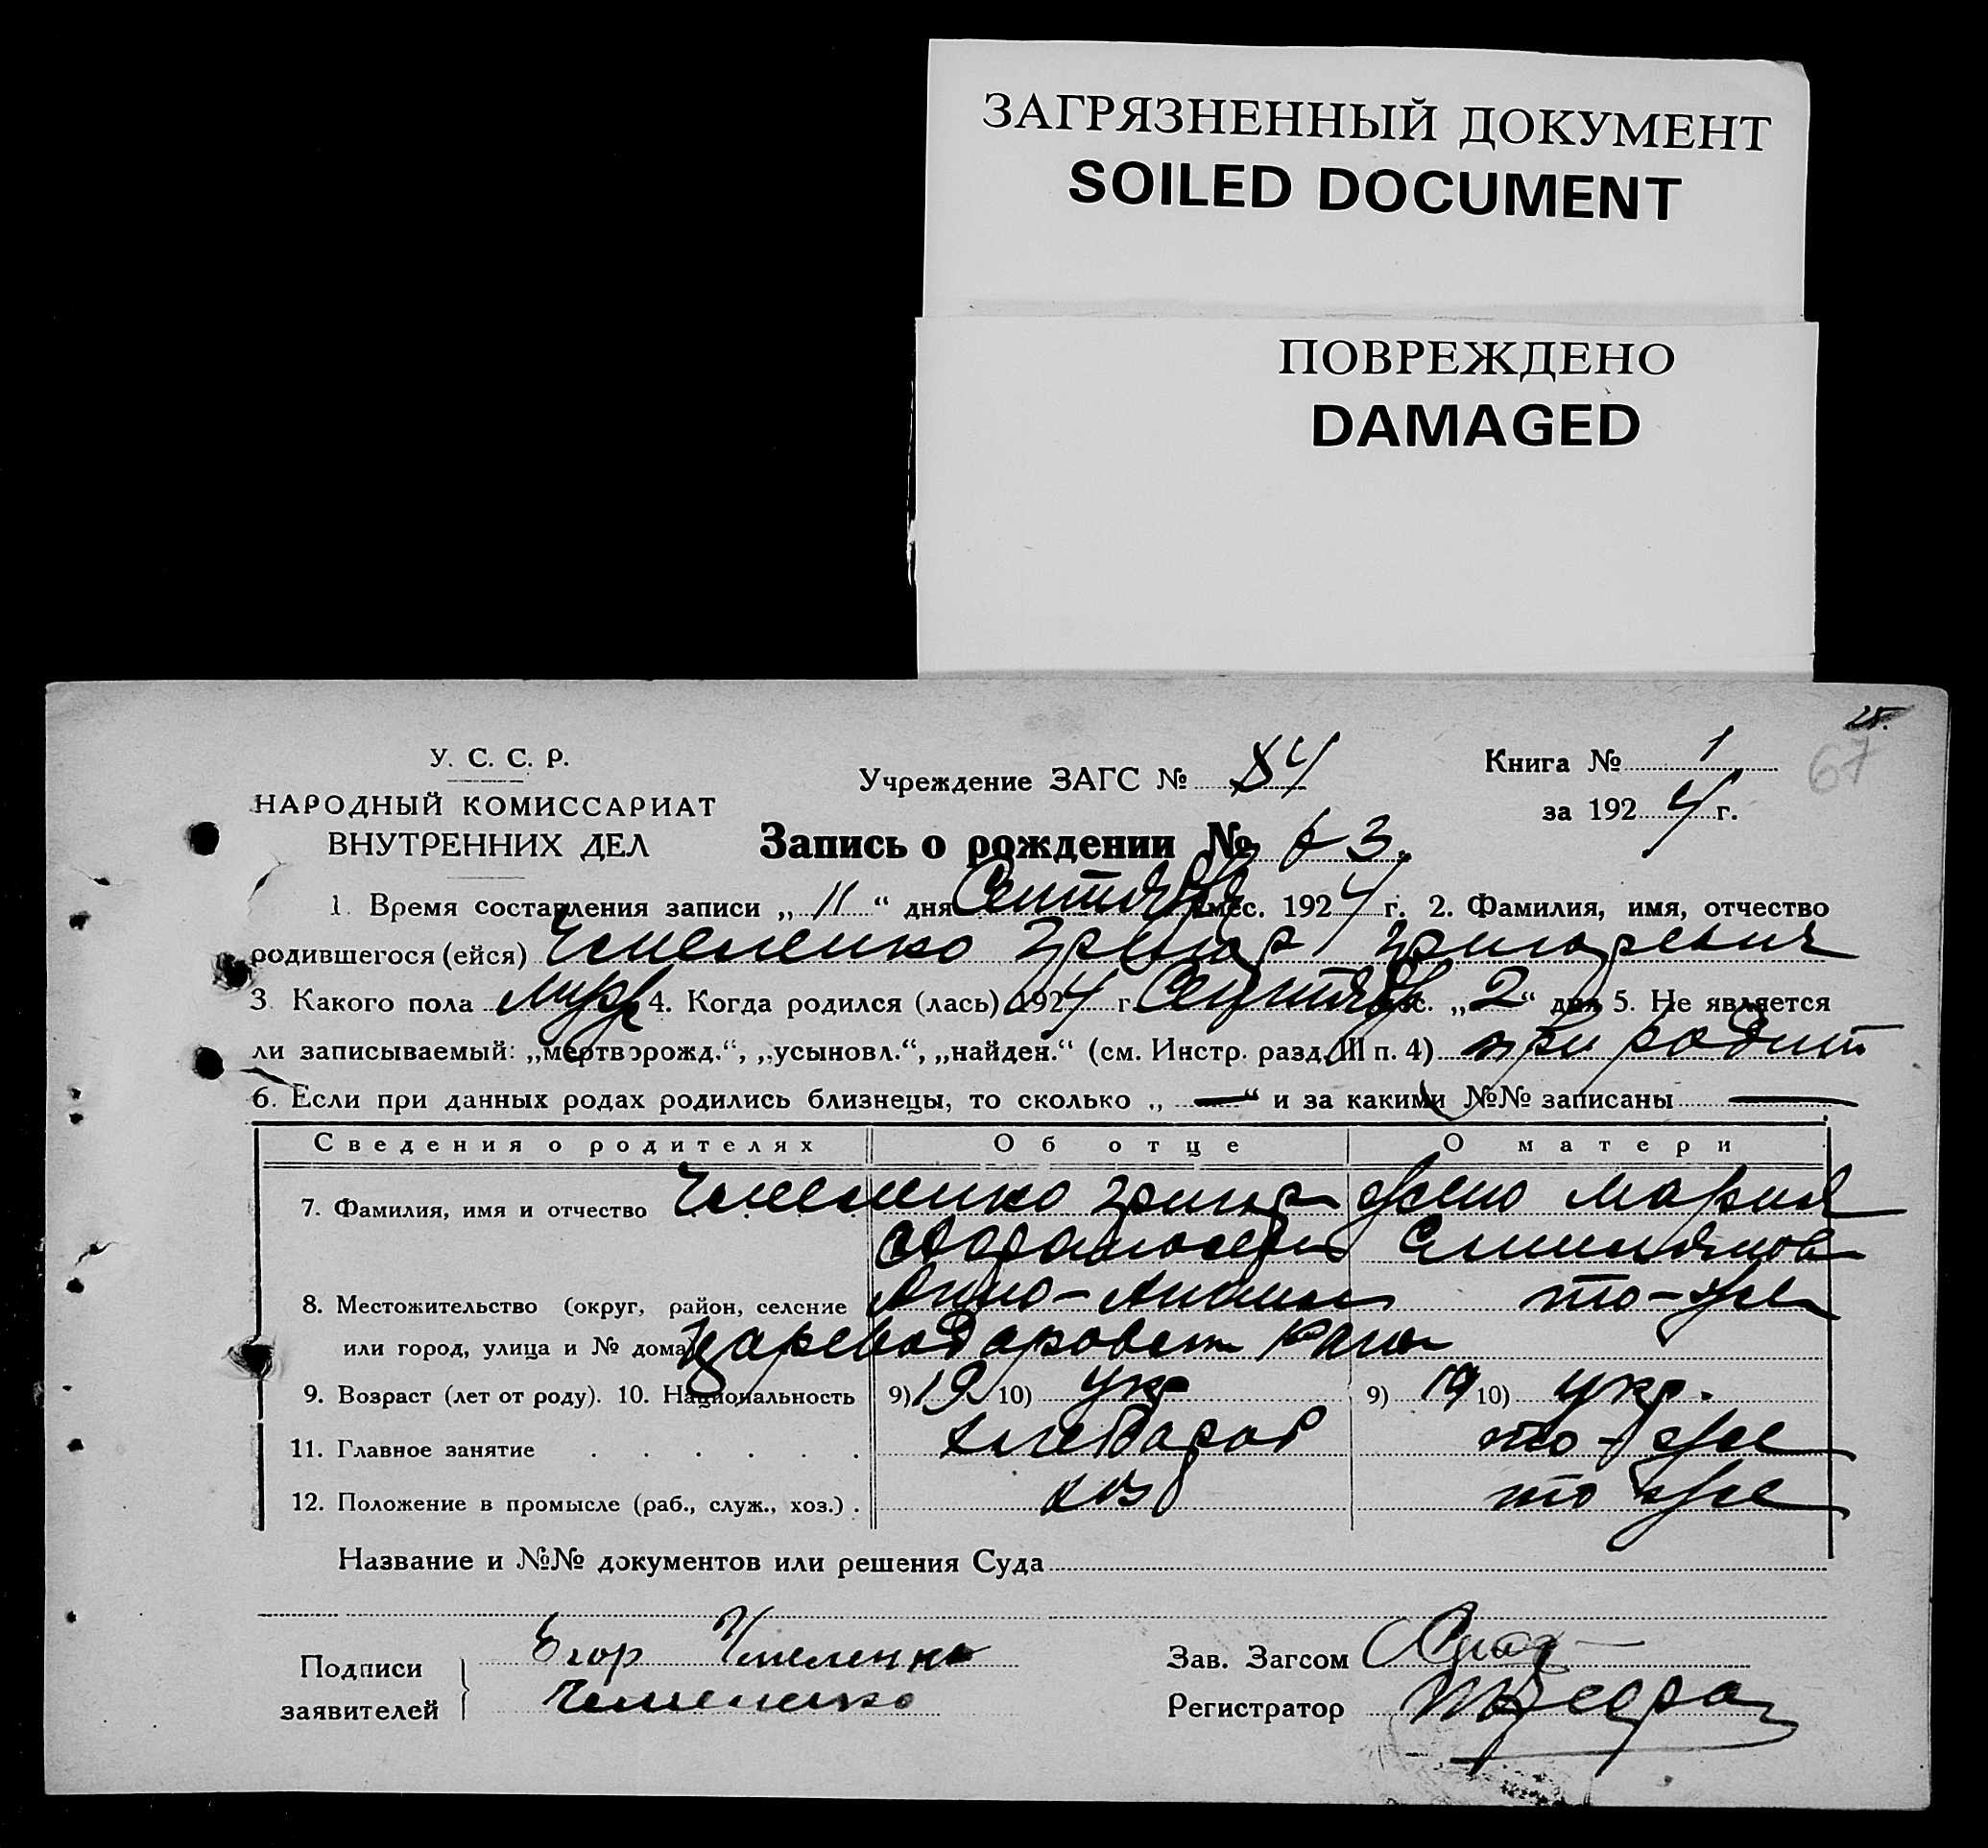 ЗАГРЯЗНЕННЫЙ ДОКУМЕНТ
SOILED DOCUMENT
ПОВРЕЖДЕНО
DAMAGED
25.
67
У. С. С. Р.
НАРОДНЫЙ КОМИССАРИАТ
ВНУТРЕННИХ ДЕЛ
Учреждение ЗАГС № 84
Книга № 1
за 1924 г.
Запись о рождении № 63.
1. Время составления записи „ 11 “ дня Сентября мес. 1924 г. 2. Фамилия, имя, отчество
родившегося (ейся) Чмеленко Григор Григоревич
3. Какого пола муж 4. Когда родился (лась) 1924 г. Сентяб мес. „ 2 “ дня 5. Не является
ли записываемый: „мертворожд.“, „усыновл.“, „найден.“ (см. Инстр. разд. III п. 4) при родит
6. Если при данных родах родились близнецы, то сколько „ — “ и за какими №№ записаны —
Сведения о родителях Об отце О матери
7. Фамилия, имя и отчество Чмеленко Григор Мария
8. Местожительство (округ, район, селение Анно- то-же
или город, улица и № дома) Цареводаровск
9. Возраст (лет от роду). 10. Национальность 9) 19 10) укр 9) 19 10) укр.
11. Главное занятие хлебороб то-же
12. Положение в промысле (раб., служ., хоз.) хоз то же
Название и №№ документов или решения Суда
Подписи
заявителей
Егор Чмеленко
Чмеленко
Зав. Загсом
Регистратор